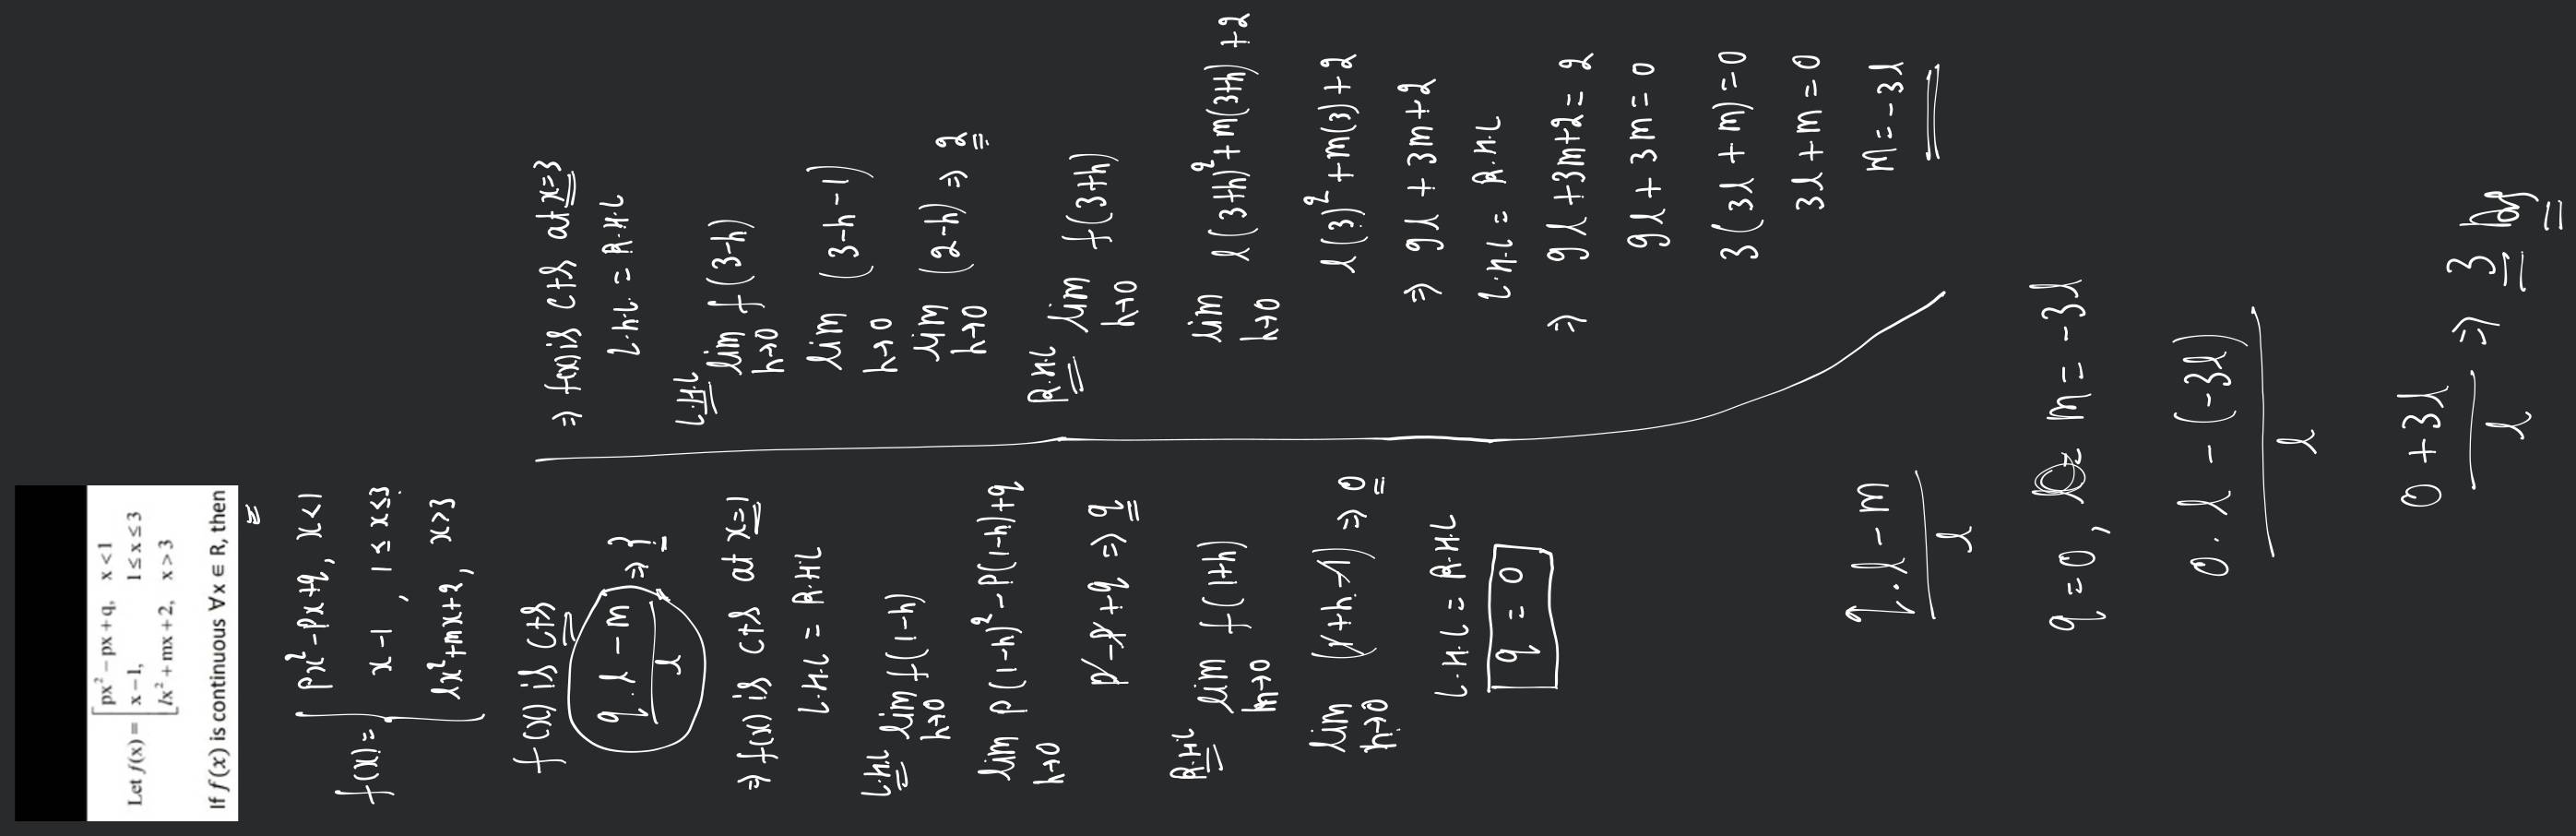 Let f(x) = [ px² - px + q, x < 1
x - 1, 1 ≤ x ≤ 3
lx² + mx + 2, x > 3
If f(x) is continuous ∀x ∈ R, then
f(x) = { px² - px + q, x < 1
x - 1, 1 ≤ x ≤ 3
lx² + mx + 2, x > 3
f(x) is cts
(q.l - m)/l ⇒ ?
⇒ f(x) is cts at x=1
L.H.L = R.H.L
L.H.L lim h→0 f(1-h)
lim h→0 p(1-h)² - p(1-h) + q
p - p + q ⇒ q
R.H.L lim h→0 f(1+h)
lim h→0 (1+h-1) ⇒ 0
L.H.L = R.H.L
q = 0
⇒ f(x) is cts at x=3
L.H.L. = R.H.L
L.H.L
lim h→0 f(3-h)
lim h→0 (3-h-1)
lim h→0 (2-h) ⇒ 2
R.H.L lim h→0 f(3+h)
lim h→0 l(3+h)² + m(3+h) + 2
l(3)² + m(3) + 2
⇒ 9l + 3m + 2
L.H.L = R.H.L
⇒ 9l + 3m + 2 = 2
9l + 3m = 0
3(3l + m) = 0
3l + m = 0
m = -3l
(q.l - m)/l
q = 0, m = -3l
(0.l - (-3l))/l
(0 + 3l)/l ⇒ 3